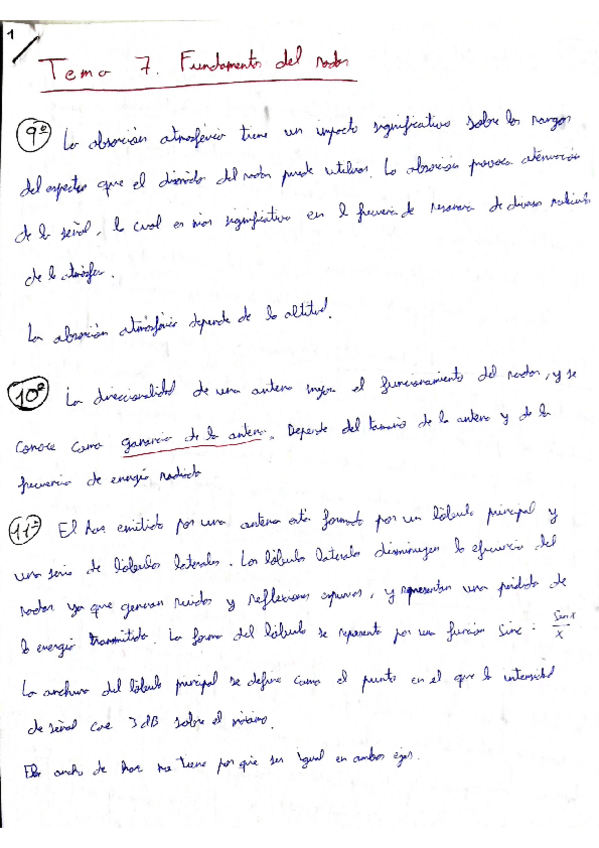 1
Tema 7. Fundamentos del radar
9º La absorción atmosférica tiene un impacto significativo sobre los rangos
del espectro que el diseñado del radar puede utilizar. La absorción provoca atenuación
de la señal, lo cual es más significativo en la frecuencia de resonancia de diversas moléculas
de la atmósfera.
La absorción atmosférica depende de la altitud.
10º La direccionalidad de una antena mejora el funcionamiento del radar, y se
conoce como ganancia de la antena. Depende del tamaño de la antena y de la
frecuencia de energía radiada
11º El haz emitido por una antena está formado por un lóbulo principal y
una serie de lóbulos laterales. Los lóbulos laterales disminuyen la eficiencia del
radar ya que generan ruidos y reflexiones espurias, y representan una pérdida de
la energía transmitida. La forma del lóbulo se representa por una función Sinc: Sin x / x
La anchura del lóbulo principal se define como el punto en el que la intensidad
de señal cae 3 dB sobre el máximo.
El ancho de haz no tiene por que ser igual en ambos ejes.